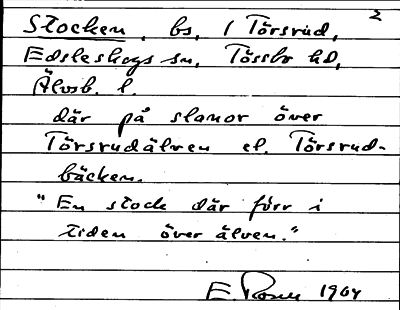 2
Stocken, bs, / Törsrud,
Edsleskogs sn, Tössbo hd,
Älvsb. l.
där på slanor över
Törsrudälven el. Törsrud-
bäcken.
"En stock där förr i
tiden över älven."
E. Rosen 1964